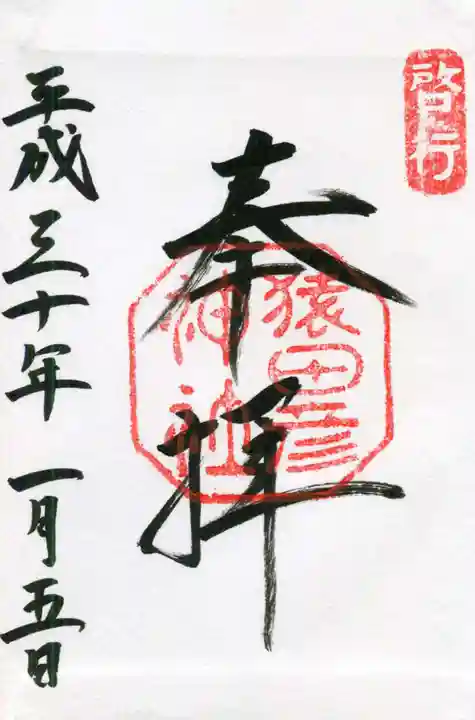 啓行
奉拝
猿田彦
神社
平成三十年一月五日